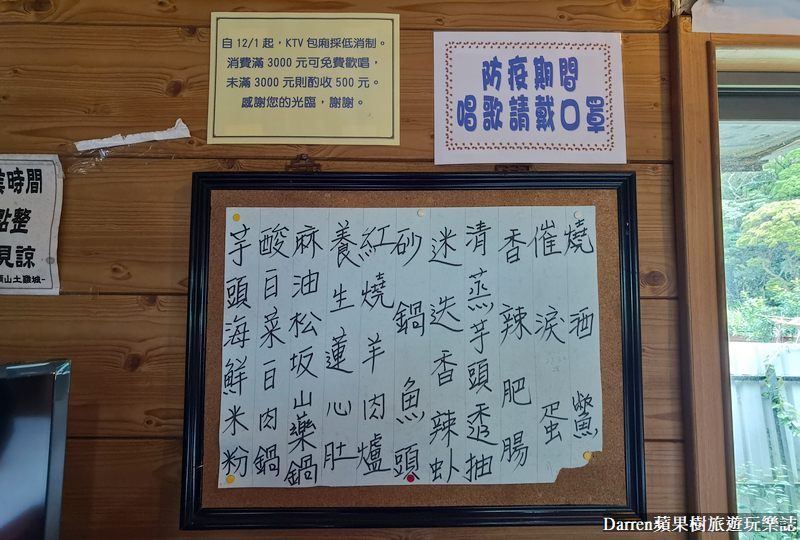 自 12/1 起，KTV 包廂採低消制。
消費滿 3000 元可免費歡唱，
未滿 3000 元則酌收 500 元。
感謝您的光臨，謝謝。
防疫期間
唱歌請戴口罩
時間
點整
見諒
山土雞城-
燒酒鱉
催淚蛋
香辣肥腸
清蒸芋頭透抽
迷迭香辣虾
砂鍋魚頭
紅燒羊肉爐
養生蓮心肚
麻油松坂山藥鍋
酸白菜白肉鍋
芋頭海鮮米粉
Darren蘋果樹旅遊玩樂誌